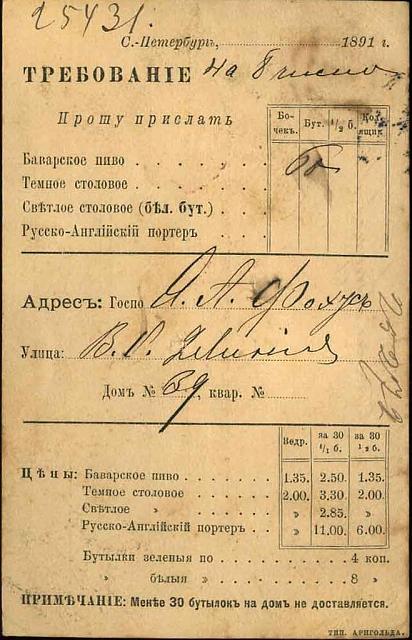 25431.
С.-Петербургъ, 1891 г.
ТРЕБОВАНІЕ на 8 число
Прошу прислать
Бочек. Бут. 1/2 б. Кол. ящик
Баварское пиво
Темное столовое
Свѣтлое столовое (бѣл. бут.)
Русско-Англійскій портеръ
Адресъ: Госпо А. А. Фохтъ
Улица: В. О. 2 Линія
Домъ № 39, квар. №
Ведр. за 30 1/1 б. за 30 1/2 б.
Цѣны: Баварское пиво 1.35. 2.50. 1.35.
Темное столовое 2.00. 3.30. 2.00.
Свѣтлое » » 2.85. »
Русско-Англійскій портеръ » 11.00. 6.00.
Бутылки зеленыя по 4 коп.
» бѣлыя » 8 »
ПРИМѢЧАНІЕ: Менѣе 30 бутылокъ на домъ не доставляется.
ТИП. АРНГОЛЬДА.